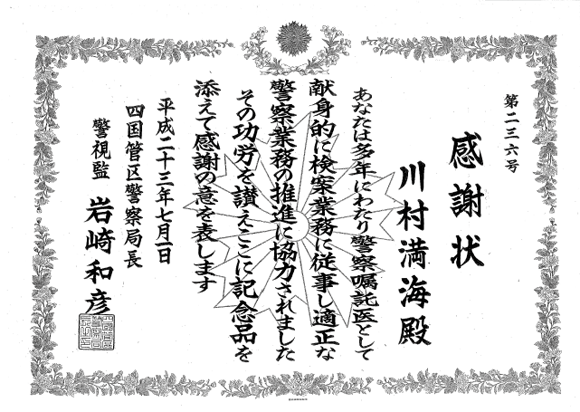 第二三六号
感謝状
川村満海殿
あなたは多年にわたり警察嘱託医として
献身的に検案業務に従事し適正な
警察業務の推進に協力されました
その功労を讃えここに記念品を
添えて感謝の意を表します
平成二十三年七月一日
四国管区警察局長
警視監 岩崎和彦